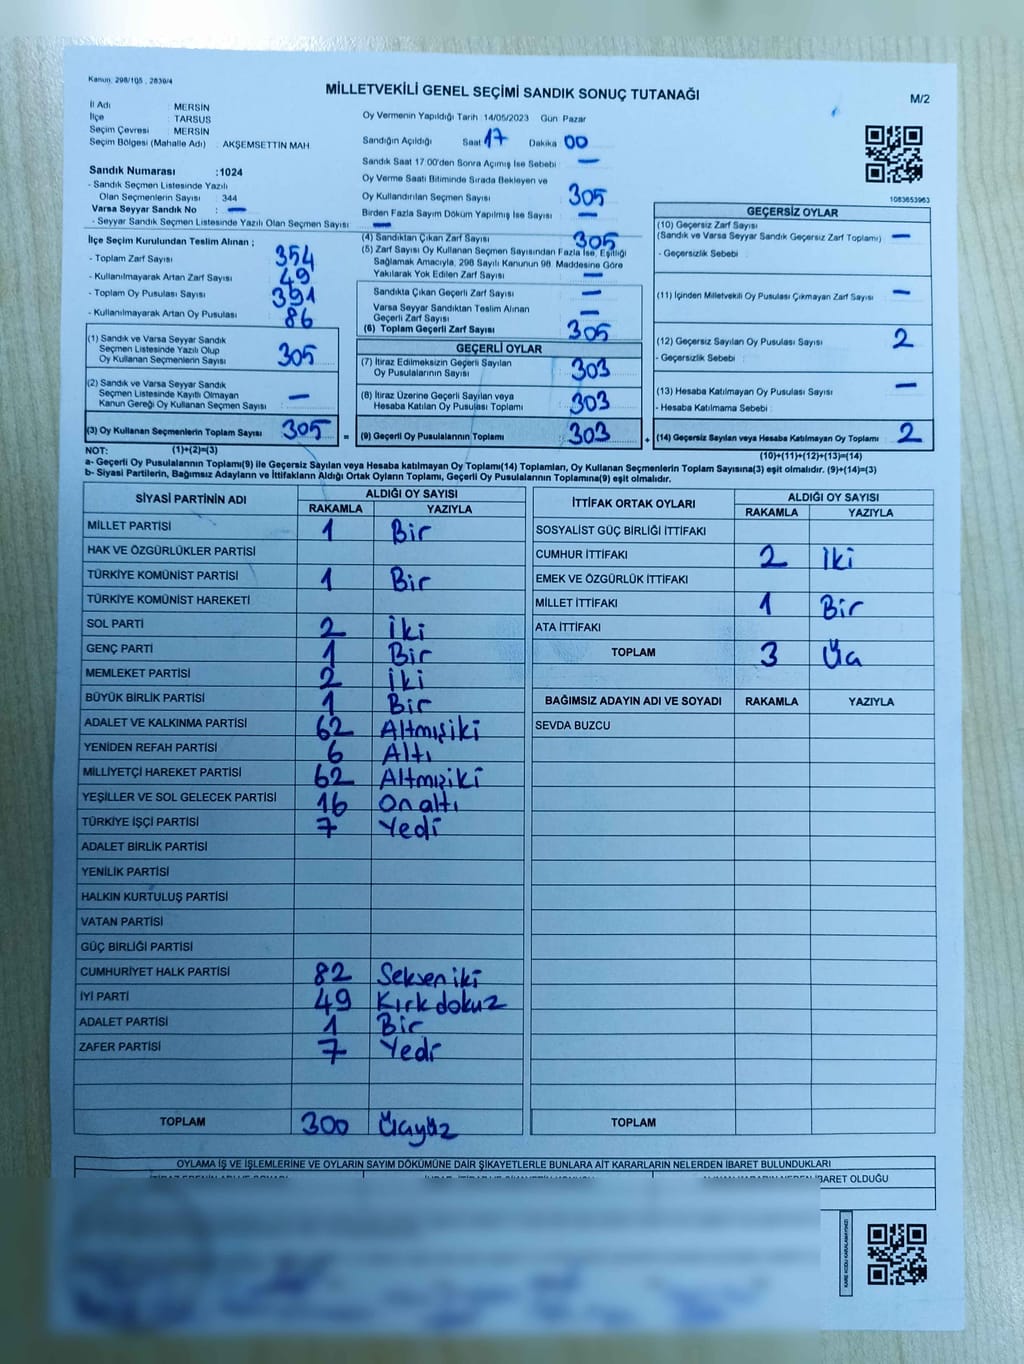 Kanun, 298/105 , 2839/4
MİLLETVEKİLİ GENEL SEÇİMİ SANDIK SONUÇ TUTANAĞI
M/2
İl Adı : MERSİN
İlçe : TARSUS
Seçim Çevresi : MERSİN
Seçim Bölgesi (Mahalle Adı) : AKŞEMSETTIN MAH
Sandık Numarası :1024
- Sandık Seçmen Listesinde Yazılı
Olan Seçmenlerin Sayısı : 344
Varsa Seyyar Sandık No : —
- Seyyar Sandık Seçmen Listesinde Yazılı Olan Seçmen Sayısı : —
İlçe Seçim Kurulundan Teslim Alınan ;
- Toplam Zarf Sayısı : 354
- Kullanılmayarak Artan Zarf Sayısı : 49
- Toplam Oy Pusulası Sayısı : 391
- Kullanılmayarak Artan Oy Pusulası : 86
(1) Sandık ve Varsa Seyyar Sandık
Seçmen Listesinde Yazılı Olup
Oy Kullanan Seçmenlerin Sayısı : 305
(2) Sandık ve Varsa Seyyar Sandık
Seçmen Listesinde Kayıtlı Olmayan
Kanun Gereği Oy Kullanan Seçmen Sayısı : —
(3) Oy Kullanan Seçmenlerin Toplam Sayısı : 305 =
Oy Vermenin Yapıldığı Tarih 14/05/2023 Gün Pazar
Sandığın Açıldığı Saat 17 Dakika 00
Sandık Saat 17 00'den Sonra Açımış İse Sebebi : —
Oy Verme Saati Bitiminde Sırada Bekleyen ve
Oy Kullandırılan Seçmen Sayısı : 305
Birden Fazla Sayım Döküm Yapılmış İse Sayısı : —
(4) Sandıktan Çıkan Zarf Sayısı : 305
(5) Zarf Sayısı Oy Kullanan Seçmen Sayısından Fazla İse, Eşitliği
Sağlamak Amacıyla, 298 Sayılı Kanunun 98. Maddesine Göre
Yakılarak Yok Edilen Zarf Sayısı : —
Sandıkta Çıkan Geçerli Zarf Sayısı : —
Varsa Seyyar Sandıktan Teslim Alınan
Geçerli Zarf Sayısı : —
(6) Toplam Geçerli Zarf Sayısı : 305
GEÇERLİ OYLAR
(7) İtiraz Edilmeksizin Geçerli Sayılan
Oy Pusulalarının Sayısı : 303
(8) İtiraz Üzerine Geçerli Sayılan veya
Hesaba Katılan Oy Pusulası Toplamı : 303
(9) Geçerli Oy Pusulalarının Toplamı : 303 +
1083653963
GEÇERSİZ OYLAR
(10) Geçersiz Zarf Sayısı
(Sandık ve Varsa Seyyar Sandık Geçersiz Zarf Toplamı) : —
- Geçersizlik Sebebi :
(11) İçinden Milletvekili Oy Pusulası Çıkmayan Zarf Sayısı : —
(12) Geçersiz Sayılan Oy Pusulası Sayısı : 2
- Geçersizlik Sebebi :
(13) Hesaba Katılmayan Oy Pusulası Sayısı : —
- Hesaba Katılmama Sebebi :
(14) Geçersiz Sayılan veya Hesaba Katılmayan Oy Toplamı : 2
NOT: (1)+(2)=(3) (10)+(11)+(12)+(13)=(14)
a- Geçerli Oy Pusulalarının Toplamı(9) ile Geçersiz Sayılan veya Hesaba katılmayan Oy Toplamı(14) Toplamları, Oy Kullanan Seçmenlerin Toplam Sayısına(3) eşit olmalıdır. (9)+(14)=(3)
b- Siyasi Partilerin, Bağımsız Adayların ve İttifakların Aldığı Ortak Oyların Toplamı, Geçerli Oy Pusulalarının Toplamına(9) eşit olmalıdır.
SİYASİ PARTİNİN ADI ALDIĞI OY SAYISI
RAKAMLA YAZIYLA
MİLLET PARTİSİ 1 Bir
HAK VE ÖZGÜRLÜKLER PARTİSİ
TÜRKİYE KOMÜNİST PARTİSİ 1 Bir
TÜRKİYE KOMÜNİST HAREKETİ
SOL PARTİ 2 İki
GENÇ PARTİ 1 Bir
MEMLEKET PARTİSİ 2 İki
BÜYÜK BİRLİK PARTİSİ 1 Bir
ADALET VE KALKINMA PARTİSİ 62 Altmışiki
YENİDEN REFAH PARTİSİ 6 Altı
MİLLİYETÇİ HAREKET PARTİSİ 62 Altmışiki
YEŞİLLER VE SOL GELECEK PARTİSİ 16 Onaltı
TÜRKİYE İŞÇİ PARTİSİ 7 Yedi
ADALET BİRLİK PARTİSİ
YENİLİK PARTİSİ
HALKIN KURTULUŞ PARTİSİ
VATAN PARTİSİ
GÜÇ BİRLİĞİ PARTİSİ
CUMHURİYET HALK PARTİSİ 82 Seksen iki
İYİ PARTİ 49 Kırk dokuz
ADALET PARTİSİ 1 Bir
ZAFER PARTİSİ 7 Yedi
TOPLAM 300 Üçyüz
İTTİFAK ORTAK OYLARI ALDIĞI OY SAYISI
RAKAMLA YAZIYLA
SOSYALİST GÜÇ BİRLİĞİ İTTİFAKI
CUMHUR İTTİFAKI 2 İki
EMEK VE ÖZGÜRLÜK İTTİFAKI
MİLLET İTTİFAKI 1 Bir
ATA İTTİFAKI
TOPLAM 3 Üç
BAĞIMSIZ ADAYIN ADI VE SOYADI RAKAMLA YAZIYLA
SEVDA BUZCU
TOPLAM
OYLAMA İŞ VE İŞLEMLERİNE VE OYLARIN SAYIM DÖKÜMÜNE DAİR ŞİKAYETLERLE BUNLARA AİT KARARLARIN NELERDEN İBARET BULUNDUKLARI
İBARET OLDUĞU
KARE KODU KARALAMAYINIZ!